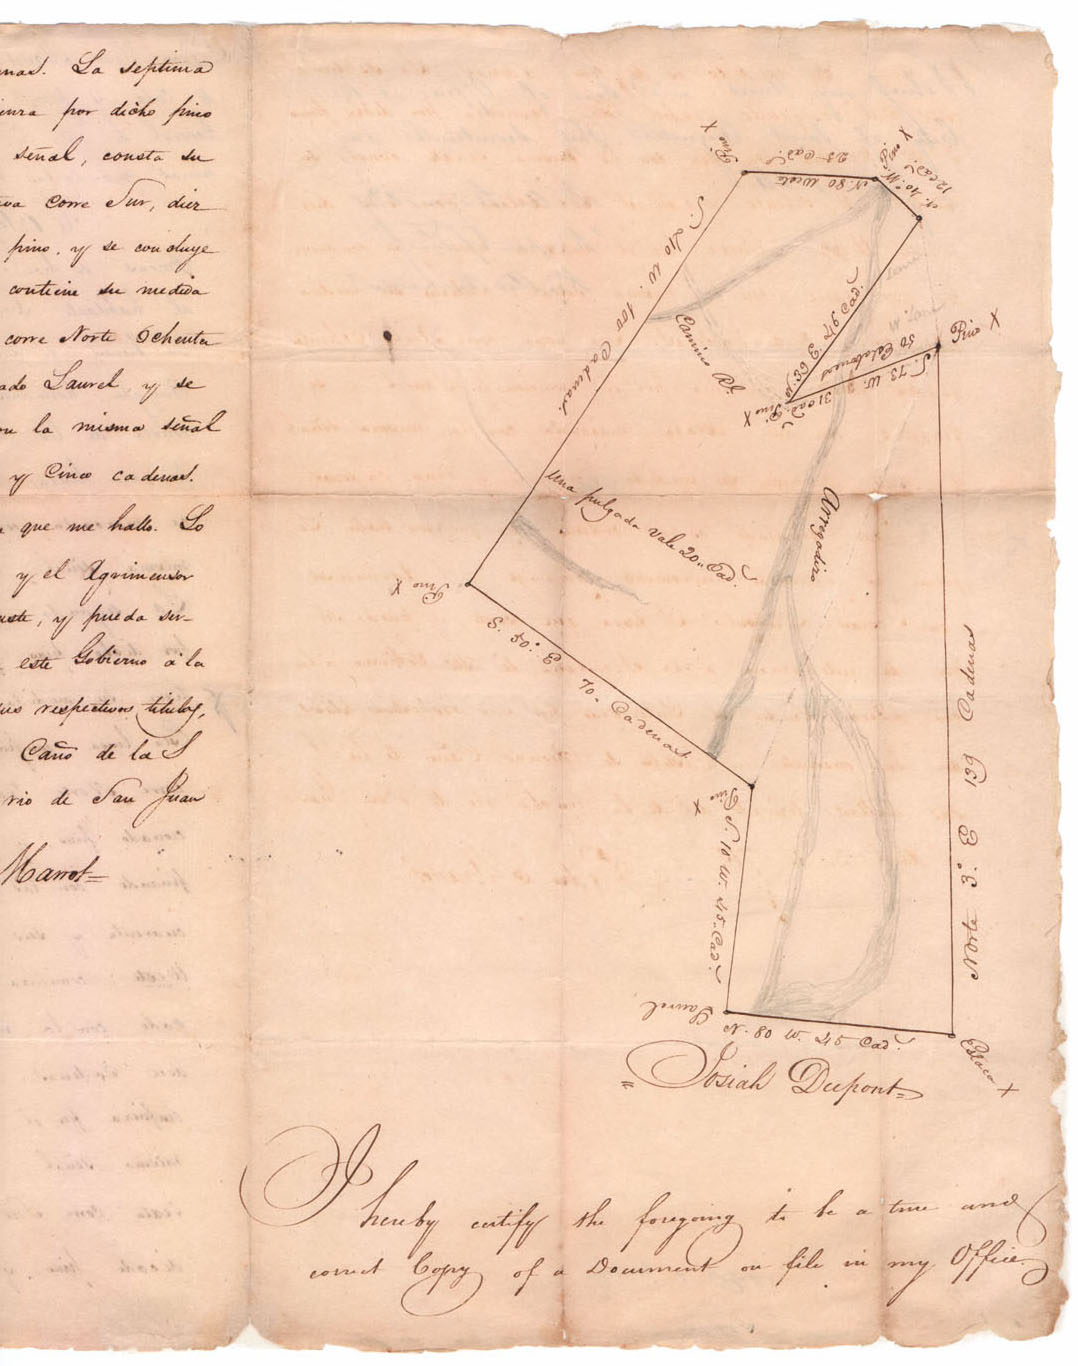 La septima
por dicho pino
señal, consta su
corre Sur, diez
pino, y se concluye
contiene su medida
corre Norte Ochenta
Laurel y se
la misma señal
y Cinco cadenas.
que me hallo. Lo
y el Agrimensor
y pueda ser-
este Gobierno á la
respectivos titulos,
Caño de la S
rio de San Juan
Marrot=
Pino X
25 Cad.
N. 80 West
Pino X
N. 40 W.
12 Cad.
S. 40 W. 100 Cadenas.
Camino Rl.
Pino X
S. 73 W.
50 Eslabones
31 Cad.
Pino X
Arroyadizo
Una pulgada vale 20 Cad.
Pino X
S. 50. E
70. Cadenas
Pino X
S. 10 W. 45. Cad.
Norte 3.° E 139 Cadenas
Laurel
N. 80 W. 45 Cad.
Estaca X
" Josiah Dupont=
I hereby certify the foregoing to be a true and
correct Copy of a Document on file in my Office